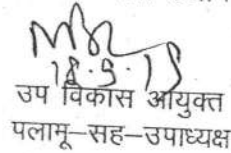 18.9.15
उप विकास आयुक्त
पलामू–सह–उपाध्यक्ष